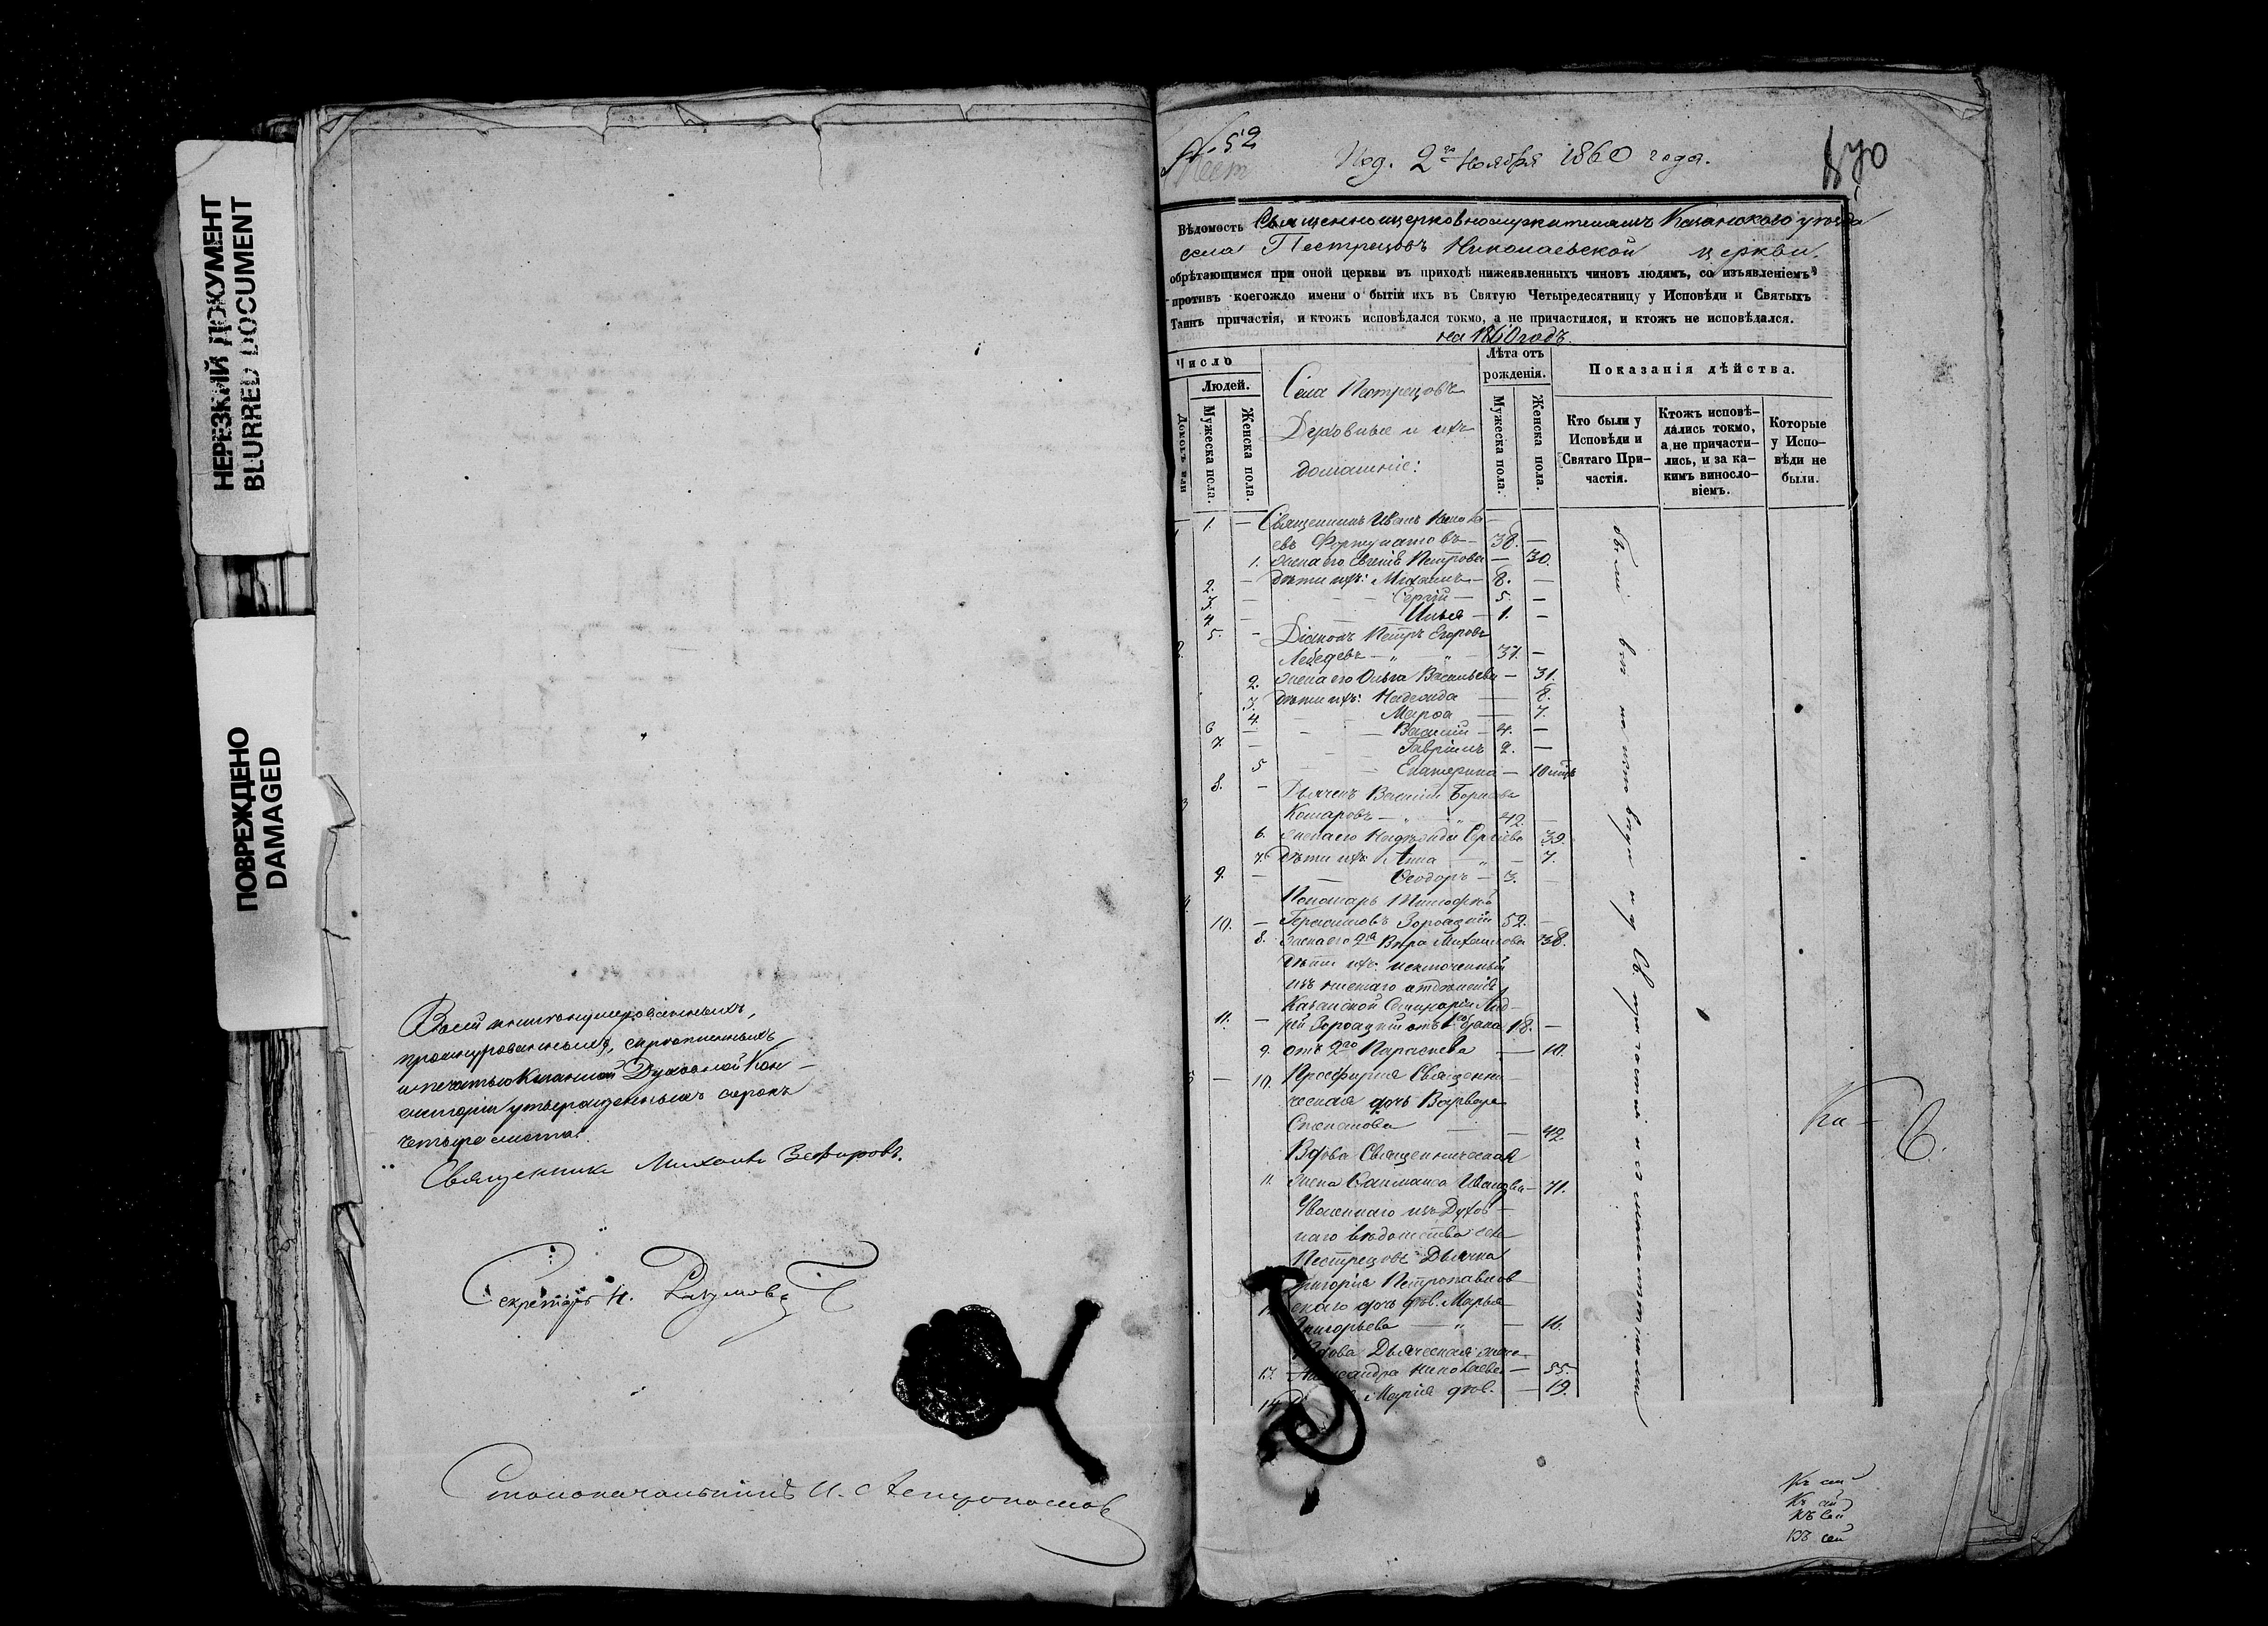 НЕРЕЗКИЙ ДОКУМЕНТ
BLURRED DOCUMENT
ПОВРЕЖДЕНО
DAMAGED
Всей книги нумерованныхъ,
прошнурованныхъ, скрепленныхъ
и печатью Казанской Духовной Кон-
систоріи утвержденныхъ сорокъ
четыре листа.
Священникъ Михаилъ Зефировъ.
Секретарь Н. Разумовъ
Столоначальникъ И.
№. 52
Под. 2го Ноября 1860 года.
Вѣдомость Священноцерковнослужителямъ Казанского уѣзда
села Пестрецовъ Николаевской церкви,
обрѣтающимся при оной церкви въ приходѣ нижеявленныхъ чиновъ людямъ, со изъявленіемъ
противъ коегождо имени о бытіи ихъ въ Святую Четыредесятницу у Исповѣди и Святыхъ
Таинъ причастія, и ктожъ исповѣдался токмо, а не причастился, и ктожъ не исповѣдался.
на 1860 годъ.
Число
Людей.
Мужеска пола.
Женска пола.
Села Пестрецовъ
Духовные и ихъ
домашніе:
Лѣта отъ
рожденія.
Мужеска пола.
Женска пола.
Показанія дѣйства.
Кто были у
Исповѣди и
Святаго При-
частія.
Ктожъ исповѣ-
дались токмо,
а не причасти-
лись, и за ка-
кимъ виносло-
віемъ.
Которые
у Испо-
вѣди не
были.
1. — Священникъ Иванъ
евъ Фортунатовъ — 38. —
1. жена его Евгенія Петрова — 30.
2. — Дѣти ихъ: Михаилъ — 8. —
3. — Сергій — 5. —
4. — Илья — 1. —
5. — Діаконъ Петръ Егоровъ
Лебедевъ — 37. —
2. жена его Ольга Васильева — 31.
3. Дѣти ихъ: Надежда — 8.
4. Марѳа — 7.
6 — Василій — 4. —
7. — Гавріилъ 2. —
5 Екатерина — 10
8. — Дьячекъ Василій
Комаровъ — 42. —
6. жена его Надежда Сергіева 39.
7. Дѣти ихъ Анна — 7.
9. — Ѳеодоръ — 3. —
Пономарь Тимоѳей
10. — Герасимовъ 52. —
8. жена его 2я Вѣра Михайлова 38.
Дѣти ихъ: исключенный
изъ низшаго отдѣленія
Казанской Семинаріи Анд-
11. — рей отъ 1го брака 18. —
9. отъ 2го Параскева — 10.
10. Просфирня Священни-
ческая дочь Варвара
Степанова — 42
Вдова Священническая
11. жена Иванова — 71.
Уволеннаго изъ Духов-
наго вѣдомства села
Пестрецовъ Дьячка
Григорія Петропавлов-
скаго дочь дѣв. Марья
Григорьева — 16.
Вдова Дьяческая жена
13. Александра Николаева — 55.
14. Марія дѣв. — 19.